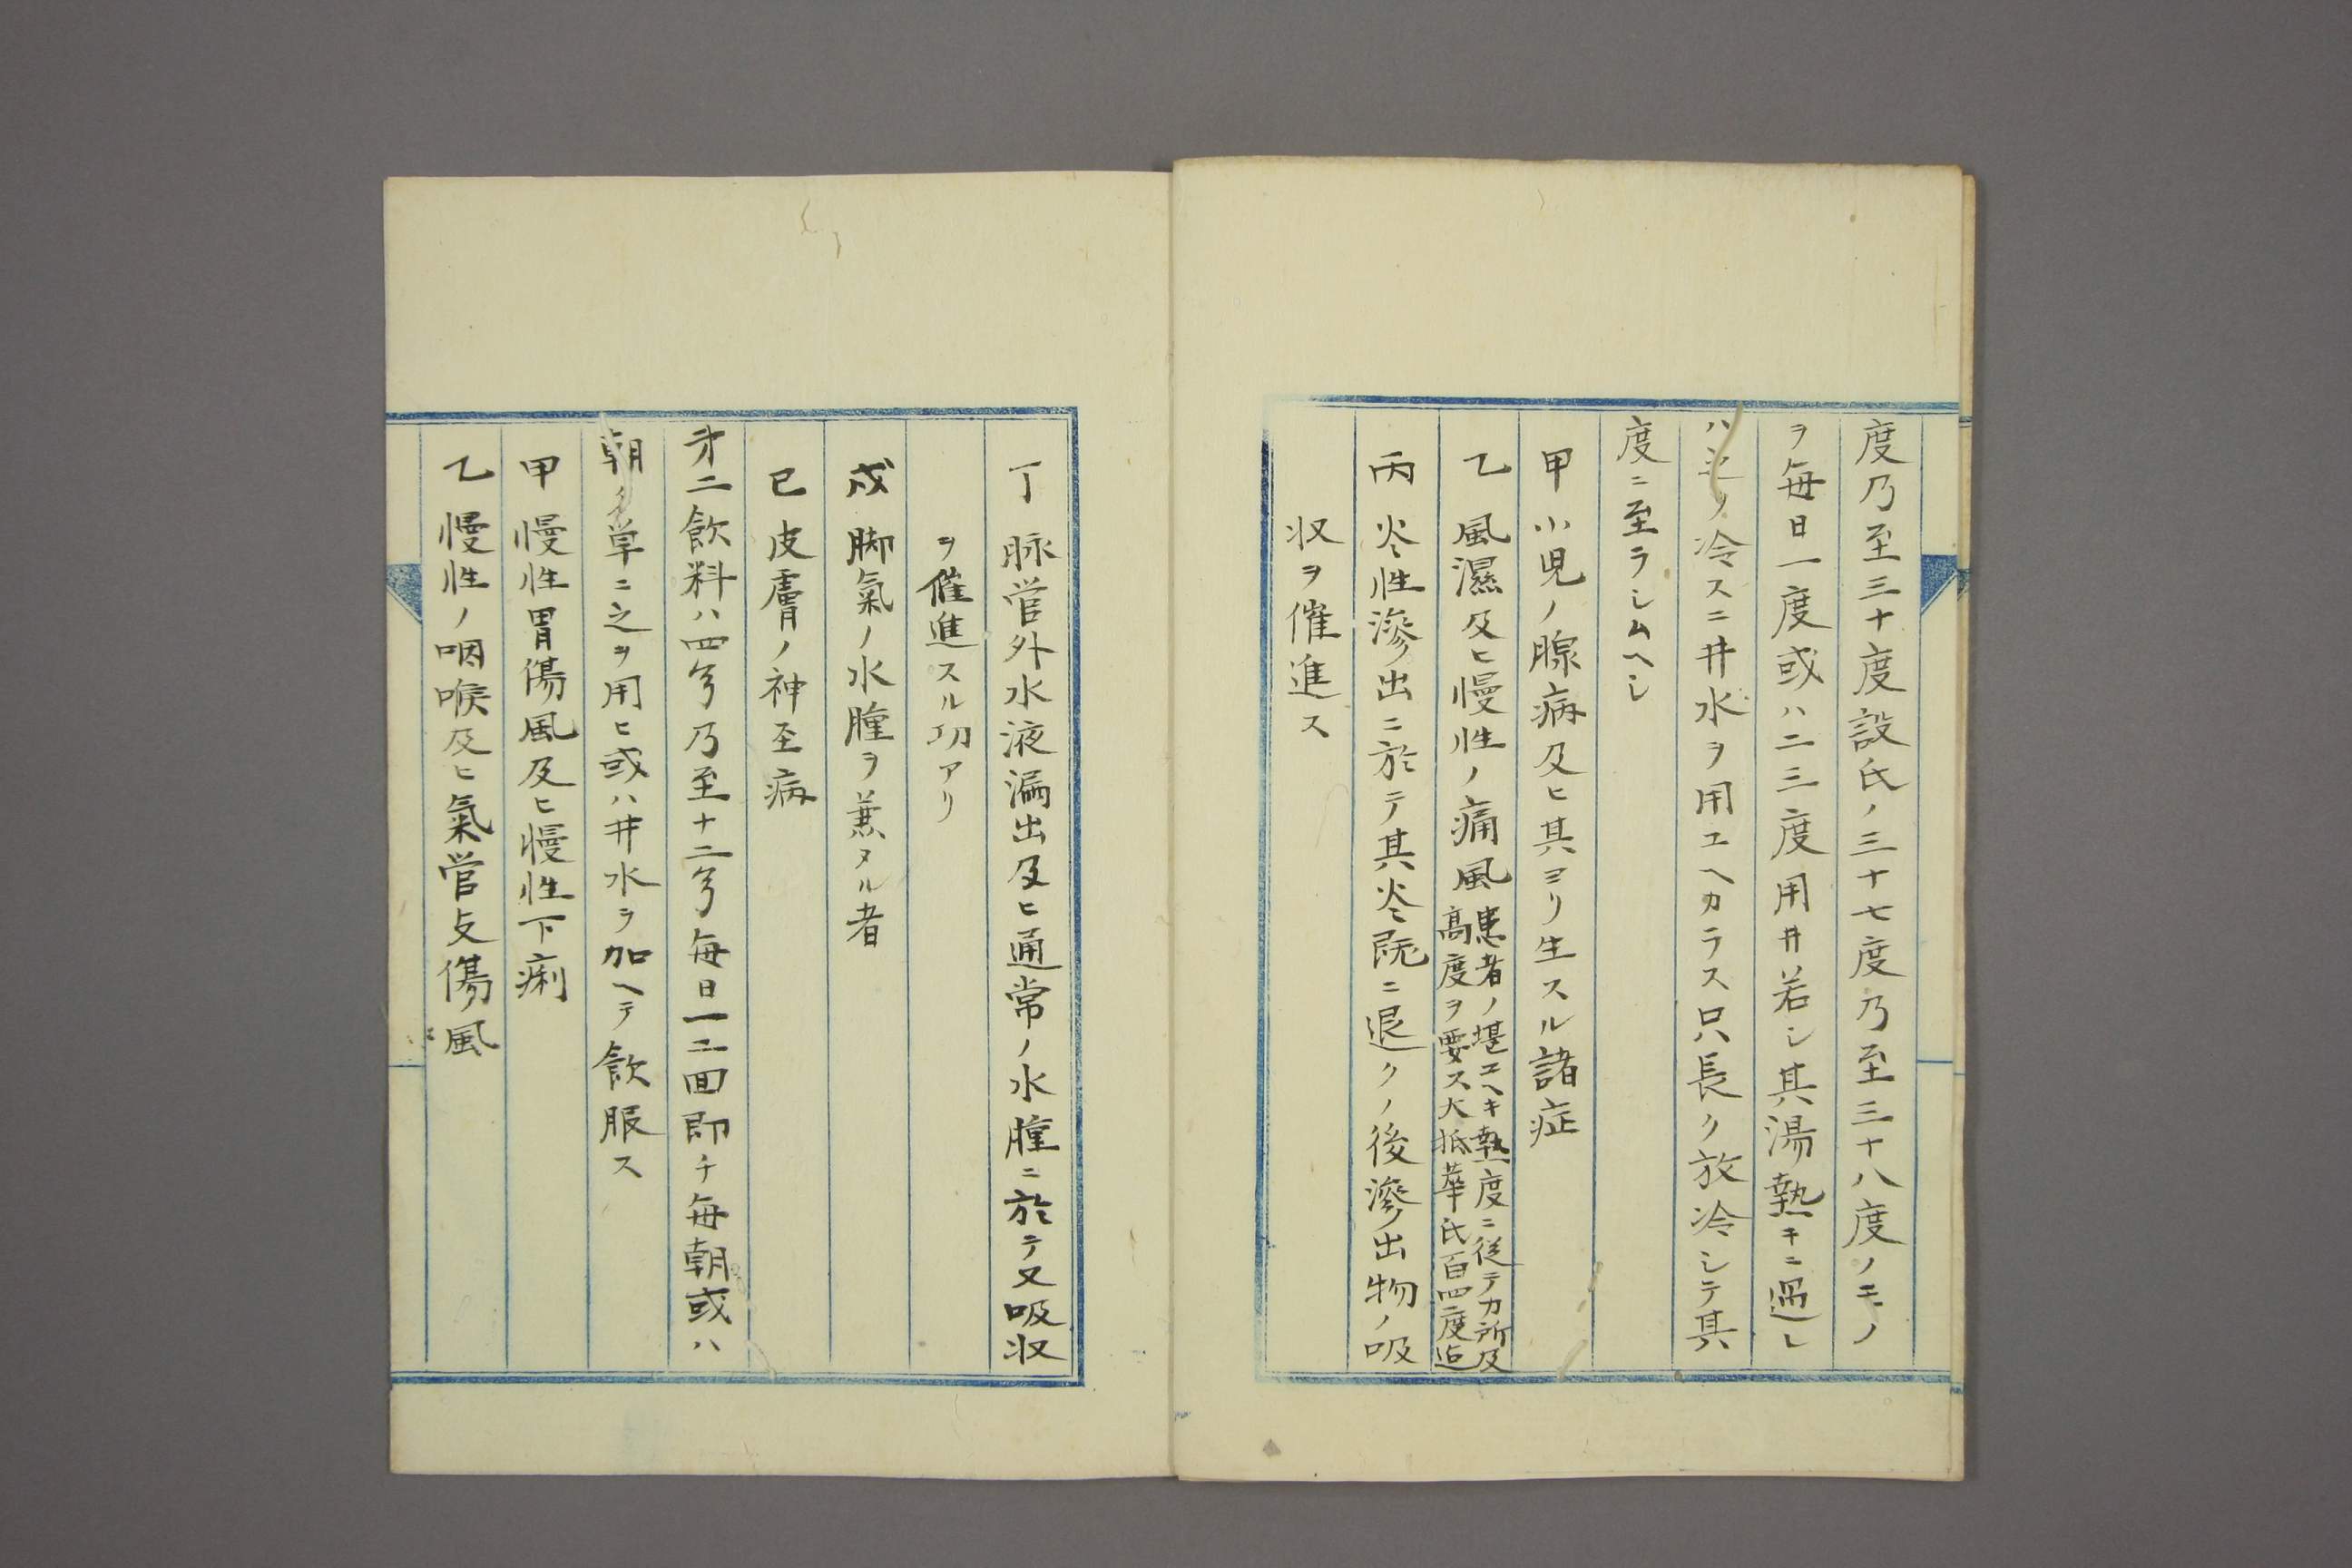 度乃至三十度設氏ノ三十七度乃至三十八度ノモノ
ヲ毎日一度或ハ二三度用井若シ其湯熱キニ過レ
ハ之ノ冷スニ井水ヲ用エヘカラス只長ク放冷シテ其
度ニ至ラシムヘシ
甲 小児ノ腺病及ヒ其ヨリ生スル諸症
乙 風濕及ヒ慢性ノ痛風
患者ノ堪エヘキ熱度ニ従テカ所及
高度ヲ要ス大抵華氏百四度迠
丙 炎性滲出ニ於テ其炎既ニ退クノ後滲出物ノ吸
収ヲ催進ス
丁 脉管外水液漏出及ヒ通常ノ水腫ニ於テ又吸収
ヲ催進スル功アリ
戍 脚氣ノ水腫ヲ兼タル者
已 皮膚ノ神至病
才二飲料ハ四穻乃至十二穻毎日一二回即チ毎朝或ハ
朝ノ草ニ之ヲ用ヒ或ハ井水ヲ加ヘテ飲服ス
甲 慢性胃傷風及ヒ慢性下痢
乙 慢性ノ咽喉及ヒ氣管支傷風